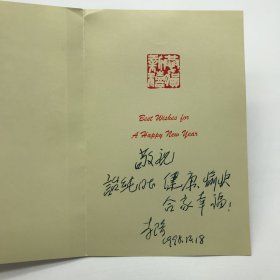 恭賀新禧
Best Wishes for
A Happy New Year
敬祝
健康、愉快
合家幸福！
1998.12.18